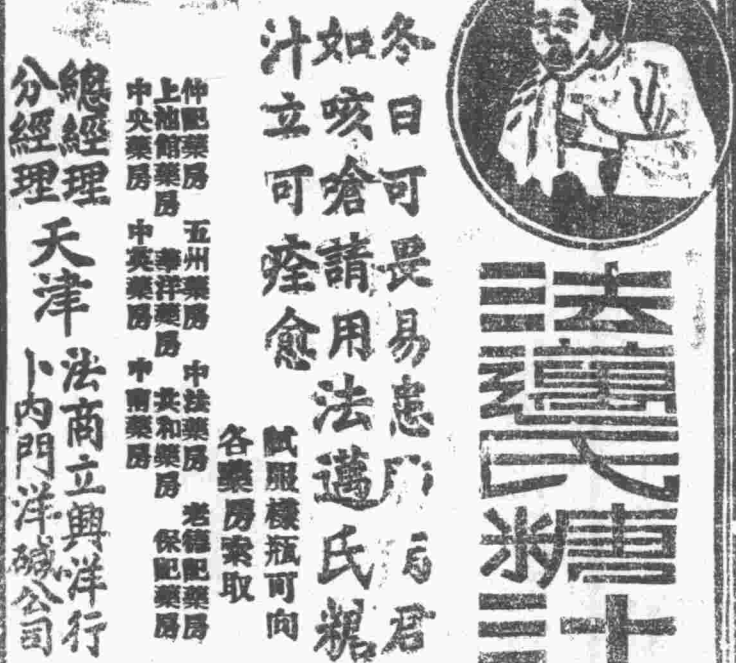 法邁氏糖汁
冬日可畏易患肺病君
如咳嗆請用法邁氏糖
汁立可痊愈
試服樣瓶可向
各藥房索取
仲記藥房 五州藥房 中法藥房 老德記藥房
上池館藥房 華洋藥房 共和藥房 保記藥房
中央藥房 中英藥房 中南藥房
總經理 天津 法商立興洋行
分經理 卜內門洋碱公司